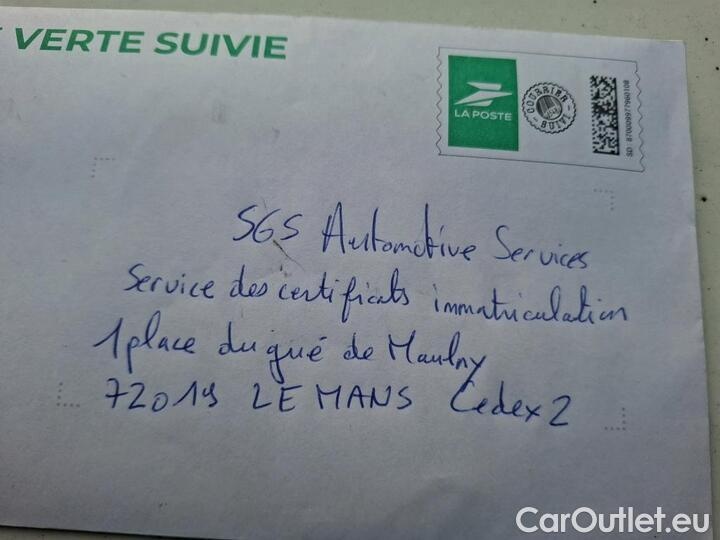 VERTE SUIVIE
LA POSTE
COURRIER
SD: 87000897796010B
SGS Automotive Services
Service des certificats immatriculation
1 place du gué de Maulny
72019 LE MANS Cedex 2
CarOutlet.eu